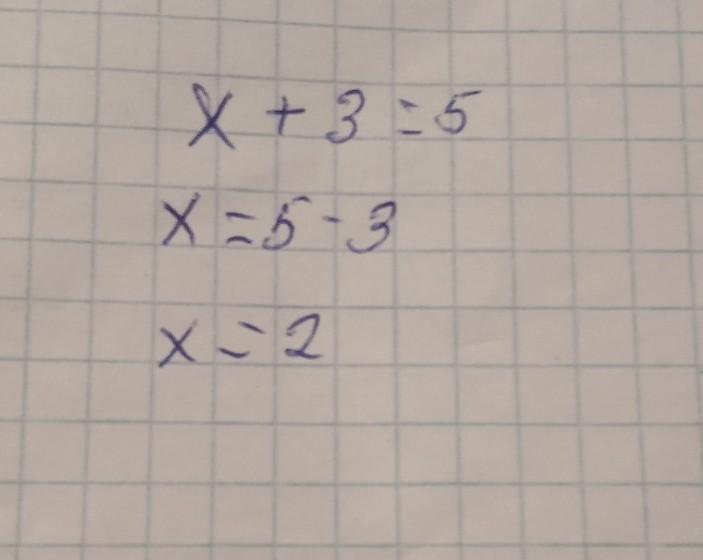 x + 3 = 5
x = 5 - 3
x = 2